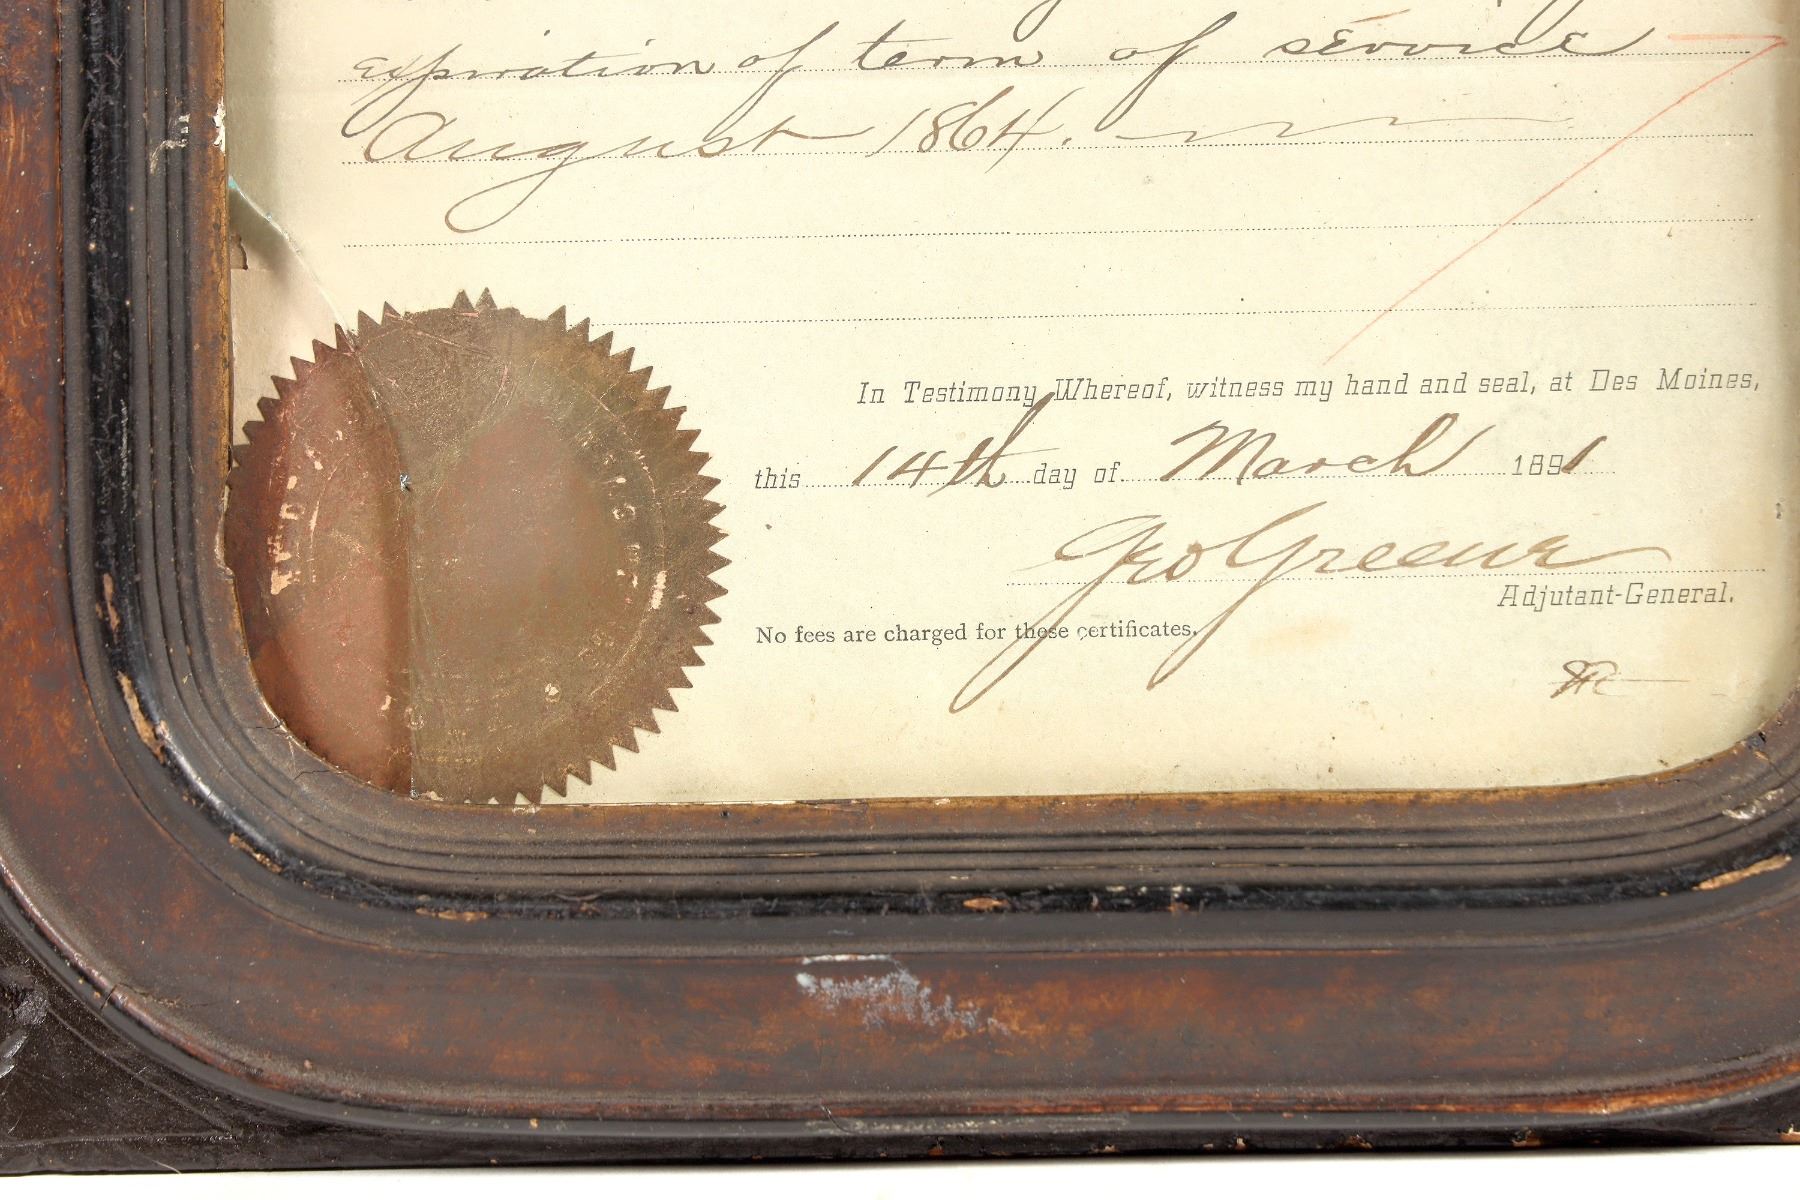 expiration of term of service
August 1864.
In Testimony Whereof, witness my hand and seal, at Des Moines,
this 14th day of March 1891
Geo Greene
Adjutant-General.
No fees are charged for these certificates.